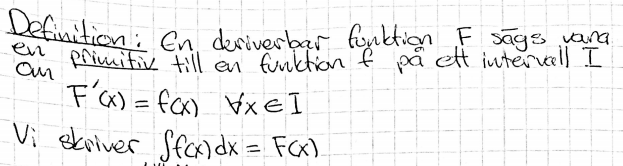 Definition: En deriverbar funktion F sägs vara
en primitiv till en funktion f på ett intervall I
om
F'(x) = f(x) ∀x ∈ I
Vi skriver ∫f(x)dx = F(x)